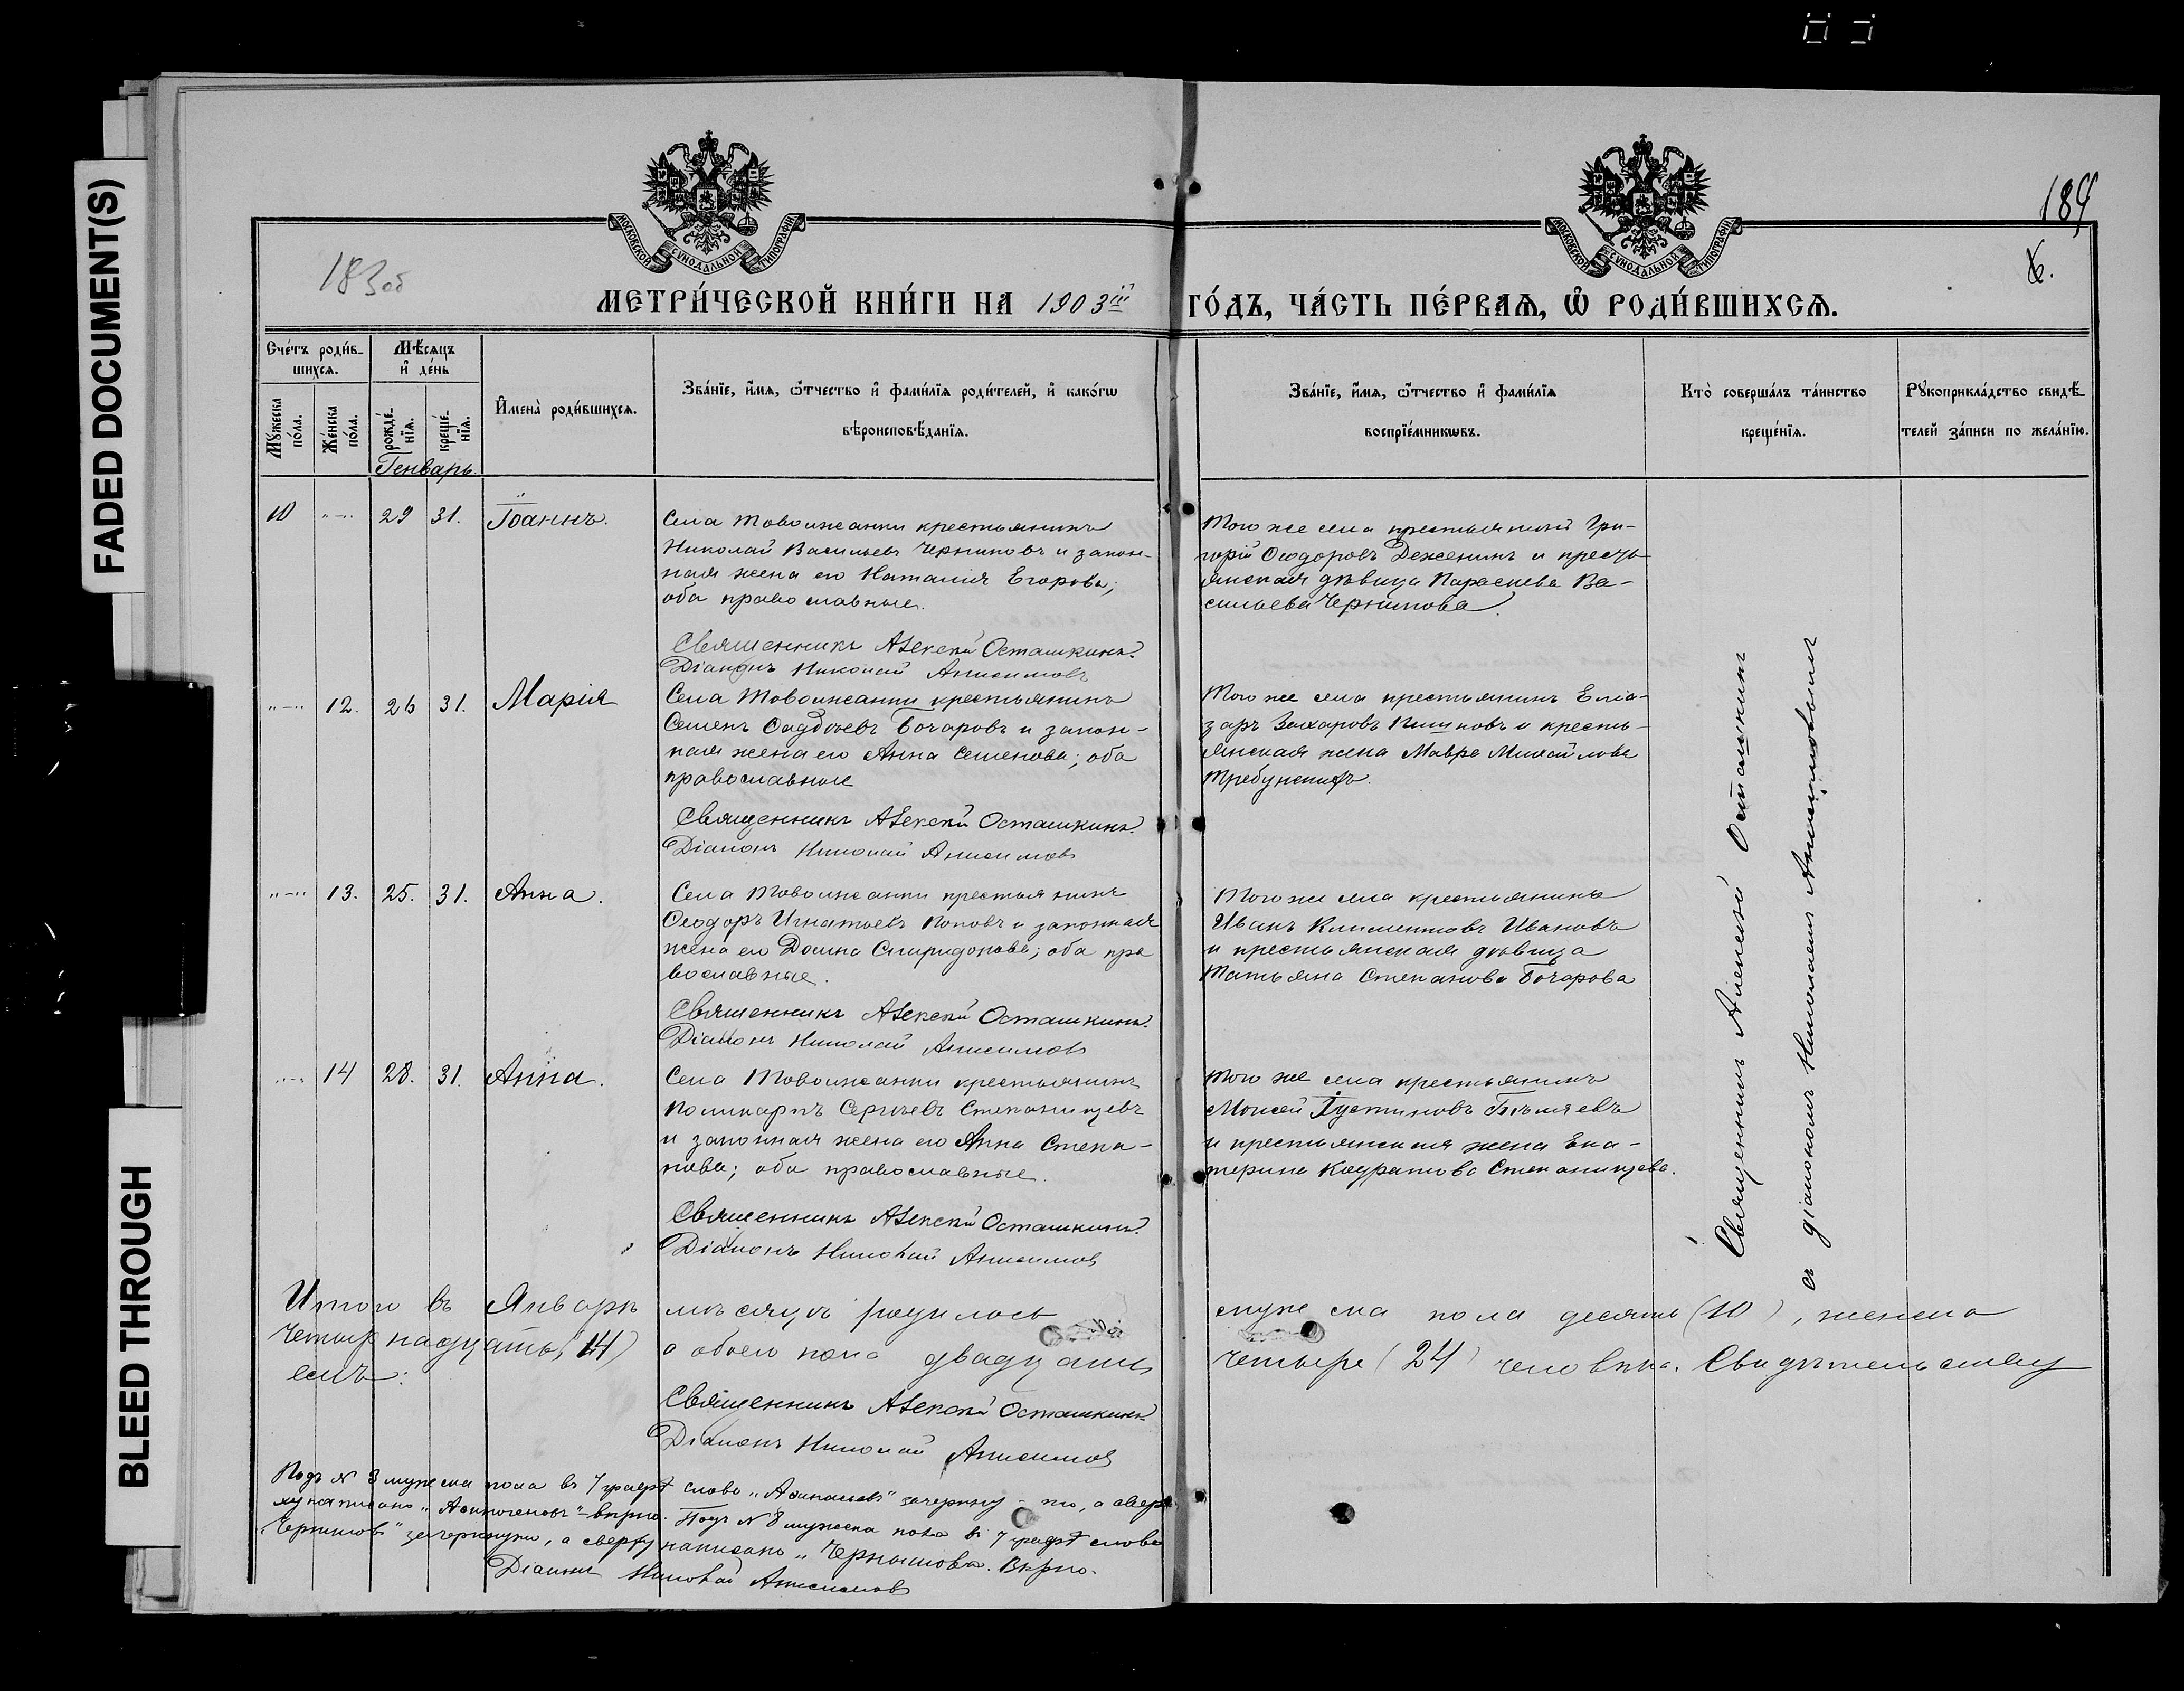 FADED DOCUMENT(S)
BLEED THROUGH
184
183об
6.
МОСКОВСКОЙ СѴНОДАЛЬНОЙ ТИПОГРАФІИ
МОСКОВСКОЙ СѴНОДАЛЬНОЙ ТИПОГРАФІИ
МЕТРИ́ЧЕСКОЙ КНИ́ГИ НА 1903 ій ГО́ДЪ, ЧА́СТЬ ПЕ́РВАѦ, Ѡ҆ РОДИ́ВШИХСѦ.
Сче́тъ роди́в-
шихсѧ.
Мꙋ́жеска по́ла.
Же́нска по́ла.
Мѣ́сѧцъ
и҆ де́нь
рожде́-
нїѧ.
креще́-
нїѧ.
Генварь.
И҆мена̀ роди́вшихсѧ.
Зва́нїе, и҆́мѧ, ѻ҆́тчество и҆ фами́лїѧ роди́телей, и҆ како́гѡ
вѣроисповѣ́данїѧ.
Зва́нїе, и҆́мѧ, ѻ҆́тчество и҆ фами́лїѧ
воспрїе́мникѡвъ.
Кто̀ соверша́лъ та́инство
креще́нїѧ.
Рꙋкоприкла́дство свидѣ́-
телей за́писи по жела́нїю.
10 "—" 29 31. Іоаннъ.
Села Товолжанки крестьянинъ
Николай Васильевъ Черниковъ и закон-
ная жена его Наталія Егорова;
оба православные.
Священникъ Алексѣй Осташкинъ.
Діаконъ Николай Анисимовъ
Того же села крестьянинъ Гри-
горій Ѳеодоровъ Деженинъ и кресть-
янская дѣвица Параскева Ва-
сильева Черникова.
"—" 12. 26 31. Марія
Села Товолжанки крестьянинъ
Семенъ Бочаровъ и закон-
ная жена его Анна Семенова; оба
православные
Священникъ Алексѣй Осташкинъ.
Діаконъ Николай Анисимовъ
Того же села крестьянинъ Еліа-
заръ Захаровъ и кресть-
янская жена Мавра Михайлова
"—" 13. 25. 31. Анна.
Села Товолжанки крестьянинъ
Ѳеодоръ Игнатьевъ Поповъ и законная
жена его Домна Спиридонова; оба пра
вославные.
Священникъ Алексѣй Осташкинъ.
Діаконъ Николай Анисимовъ
Того же села крестьянинъ
Иванъ Климентовъ Ивановъ
и крестьянская дѣвица
Татьяна Степанова Бочарова
"—" 14 28. 31. Анна.
Села Товолжанки крестьянинъ
Поликарпъ Сергѣевъ Степанищевъ
и законная жена его Анна Степа-
нова; оба православные.
Священникъ Алексѣй Осташкинъ.
Діаконъ Николай Анисимовъ
Того же села крестьянинъ
Моисей Іустиновъ Бѣляевъ
и крестьянская жена Ека-
терина Кондратова Степанищева.
Священникъ Алексѣй Осташкинъ
съ діакономъ Николаемъ Анисимовымъ
Итого въ Январѣ мѣсяцѣ родилось мужеска пола десять (10), женска
четырнадцать (14) а обоего пола двадцать четыре (24) человѣка. Свидѣтельству
емъ:
Священникъ Алексѣй Осташкинъ
Діаконъ Николай Анисимовъ
Подъ N 3 мужеска пола въ 7 графѣ слово зачеркну-то, а сверх
у написано вѣрно. Подъ N 8 мужеска пола въ 7 графѣ слово
зачеркнуто, а сверху написано вѣрно.
Діаконъ Николай Анисимовъ